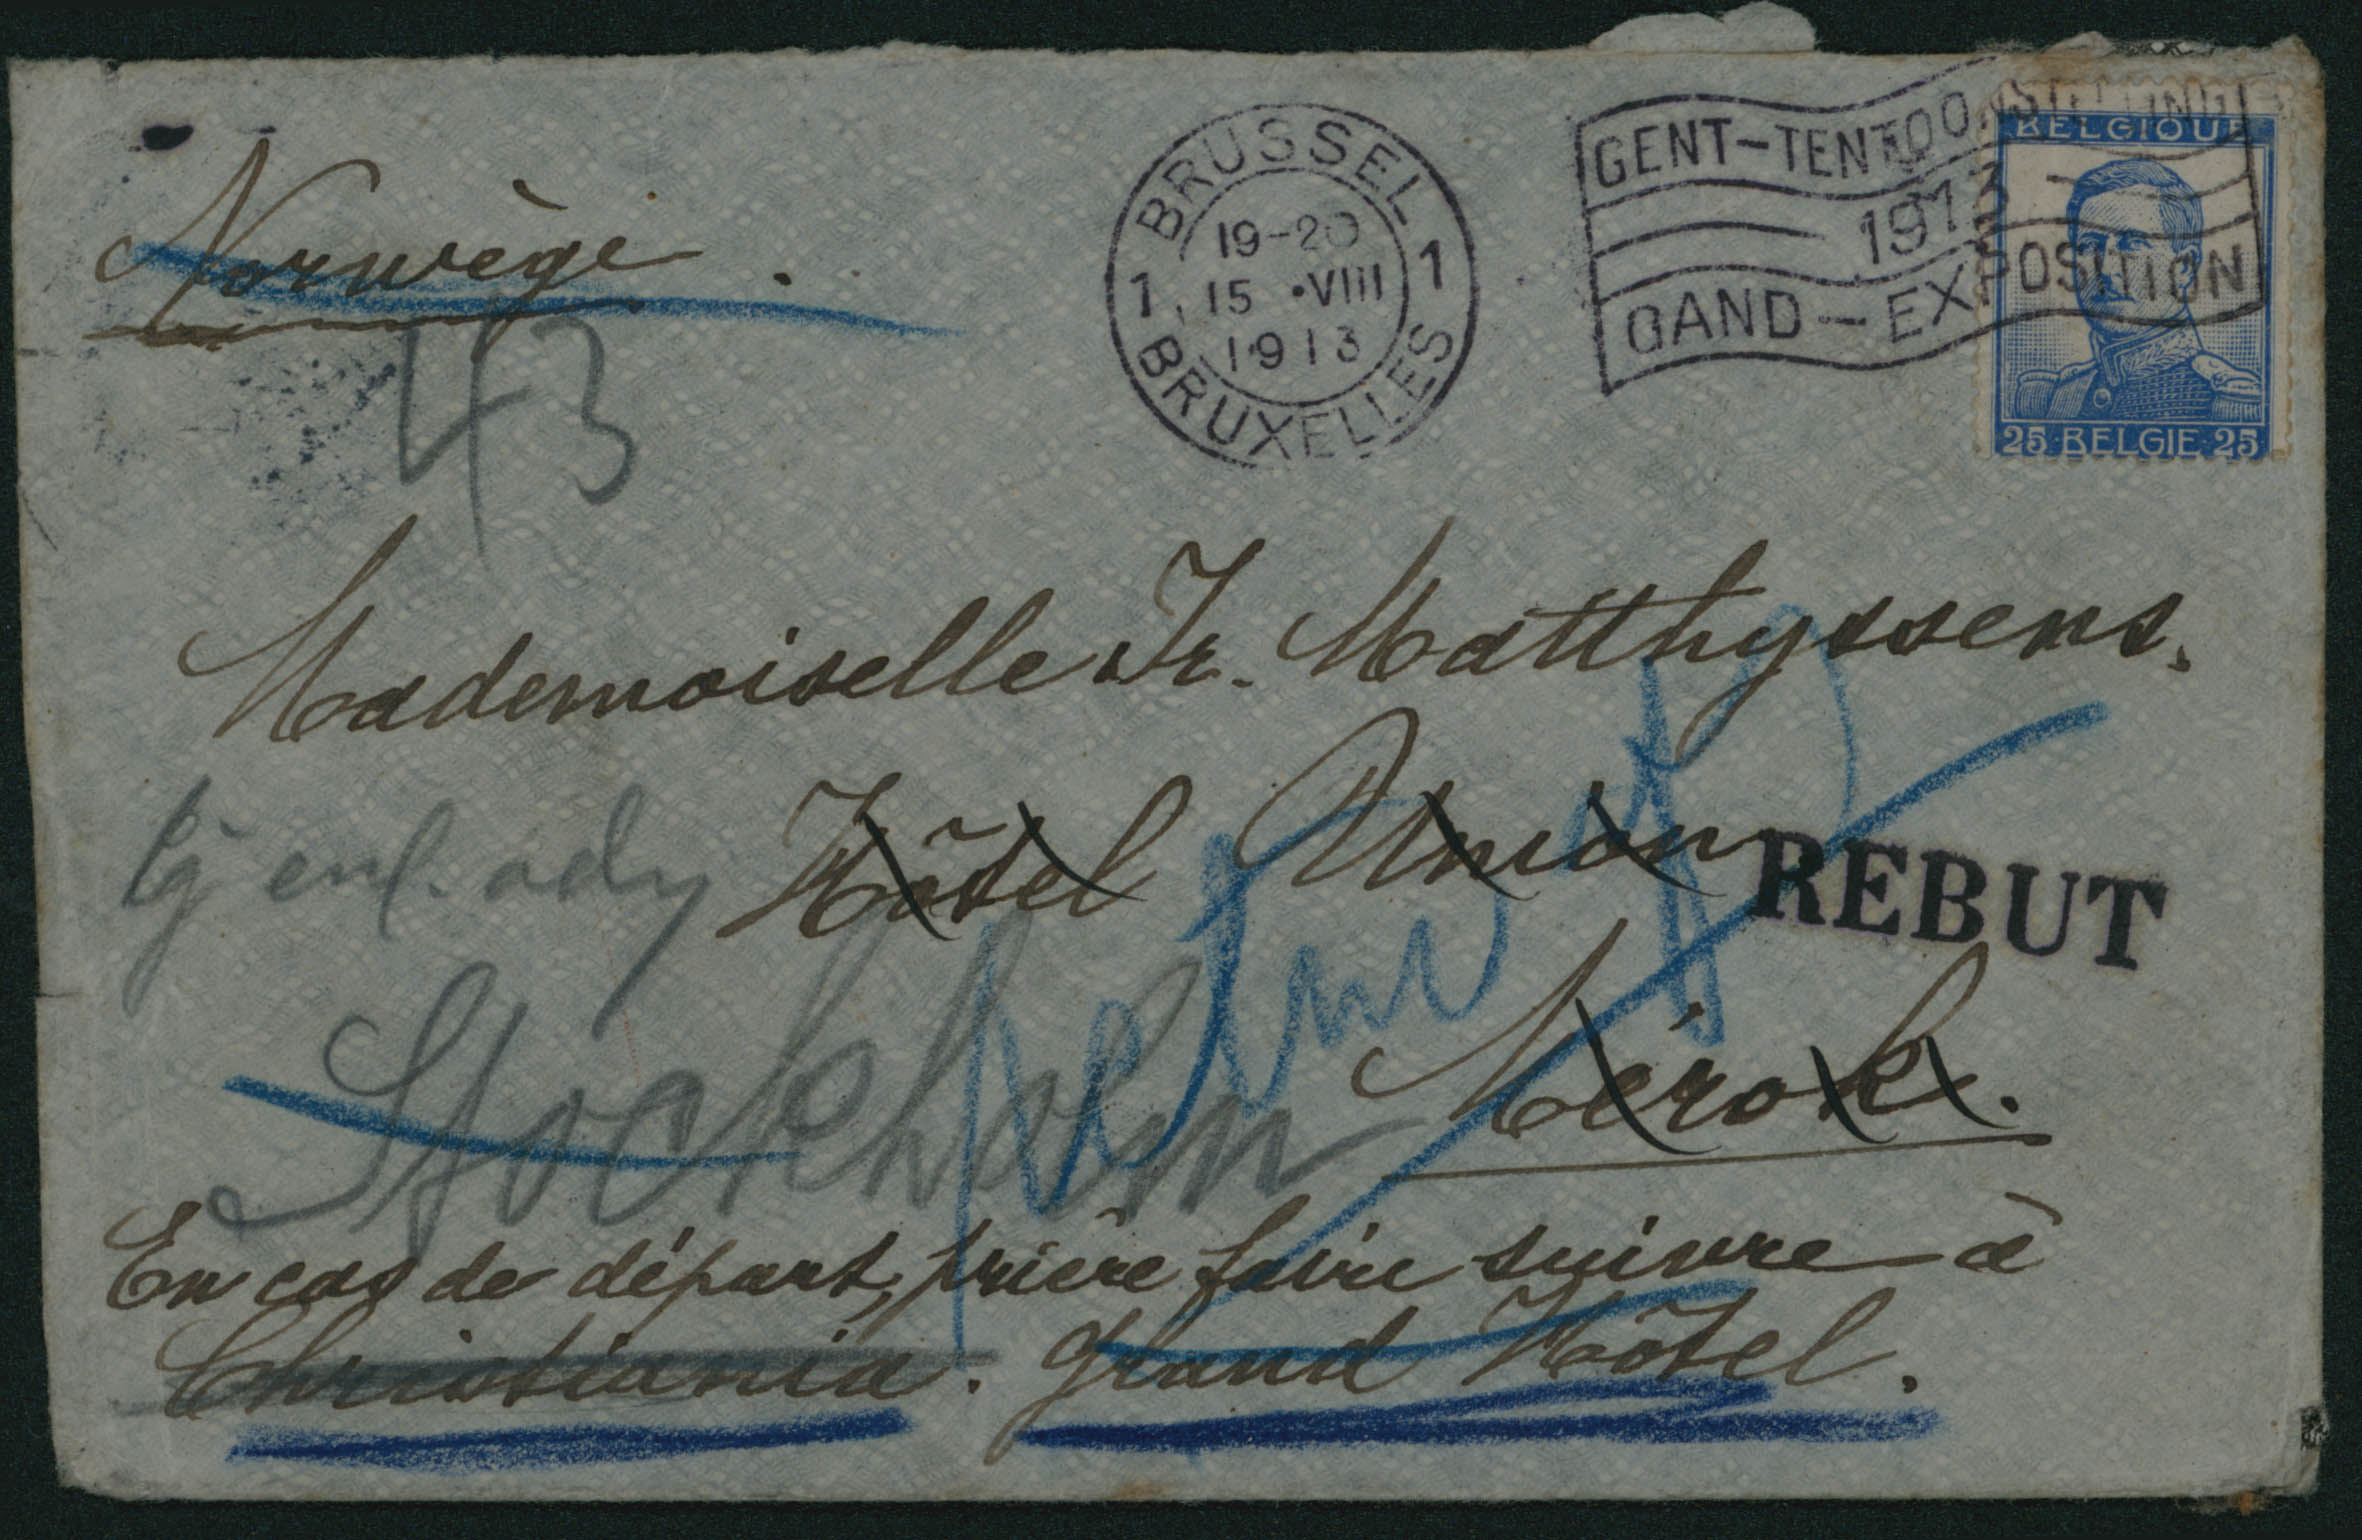 Norwège
43
BRUSSEL
19-20
1 15 •VIII 1
1913
BRUXELLES
GENT-TENTOONSTELLING
1913
GAND-EXPOSITION
BELGIQUE
25·BELGIË·25
Mademoiselle Jr. Matthyssens.
Hôtel Union
REBUT
Mérok.
Stockholm
retour
En cas de départ, prière faire suivre à
Christiania. Grand Hôtel.